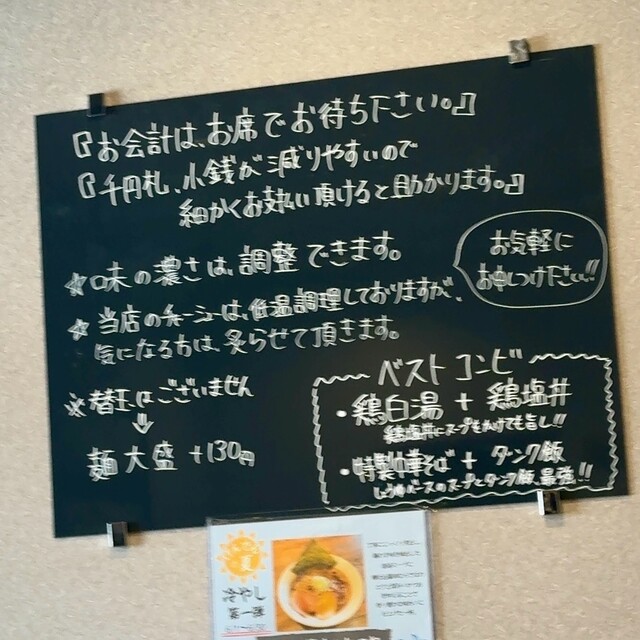 『お会計は、お席でお待ち下さい。』
『千円札、小銭が減りやすいので
細かくお払い頂けると助かります。』
☆味の濃さは、調整できます。
お気軽に
お申しつけ下さい!!
☆当店のチャーシューは、低温調理しておりますが、
気になる方は、炙らせて頂きます。
☆替玉はございません
↓
麺大盛 +130円
ベストコンビ
・鶏白湯 + 鶏塩丼
鶏塩丼にスープをかけても旨し!!
・特製中華そば + タンク飯
しょうゆベースのスープとタンク飯、最強!!
冷やし
第一弾